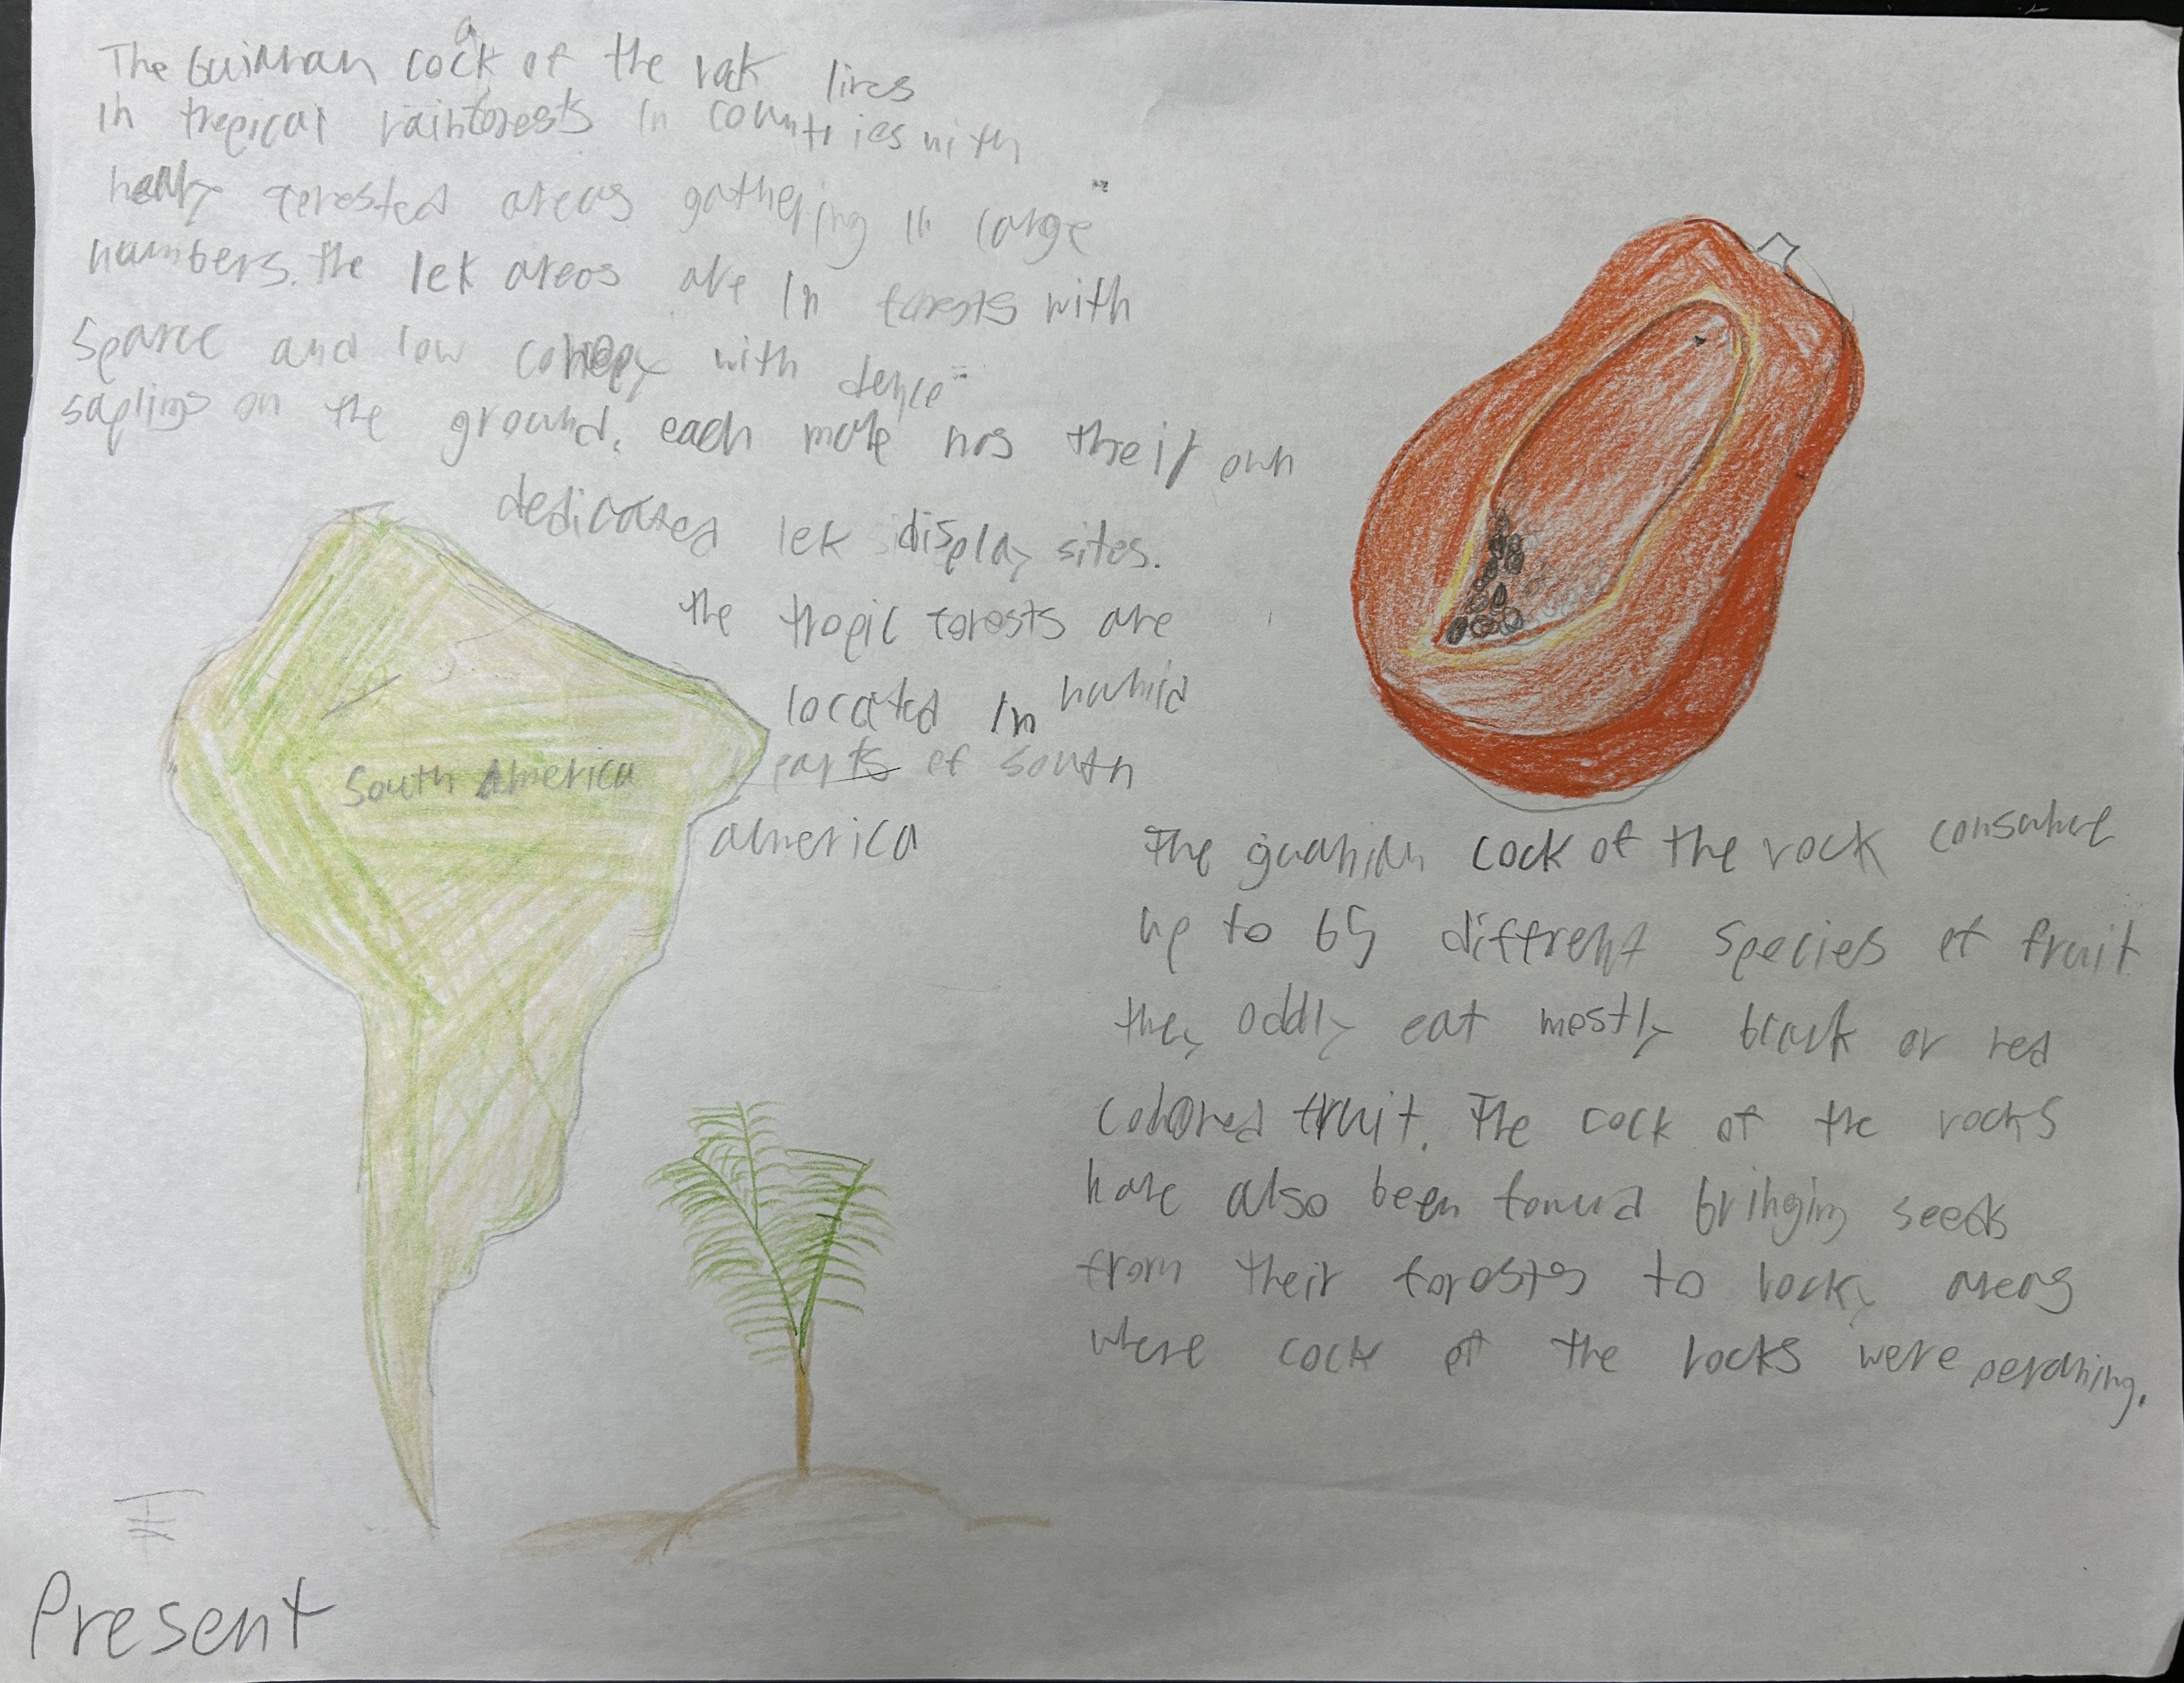 The Guinnan cock of the rock lives
in tropical rainforests in countries with
forested areas gathering in large
numbers. the lek areas are in forests with
Sparce and low canopy with dence
saplings on the ground. each male has their own
dedicated lek display sites.
the tropic forests are
located in humid
parts of south
america
South America
The guanian cock of the rock consume
up to 65 diffrent species of fruit
they oddly eat mostly black or red
colored fruit. The cock of the rocks
have also been found bringing seeds
from their forests to rocky areas
where cock of the rocks were perching.
Present